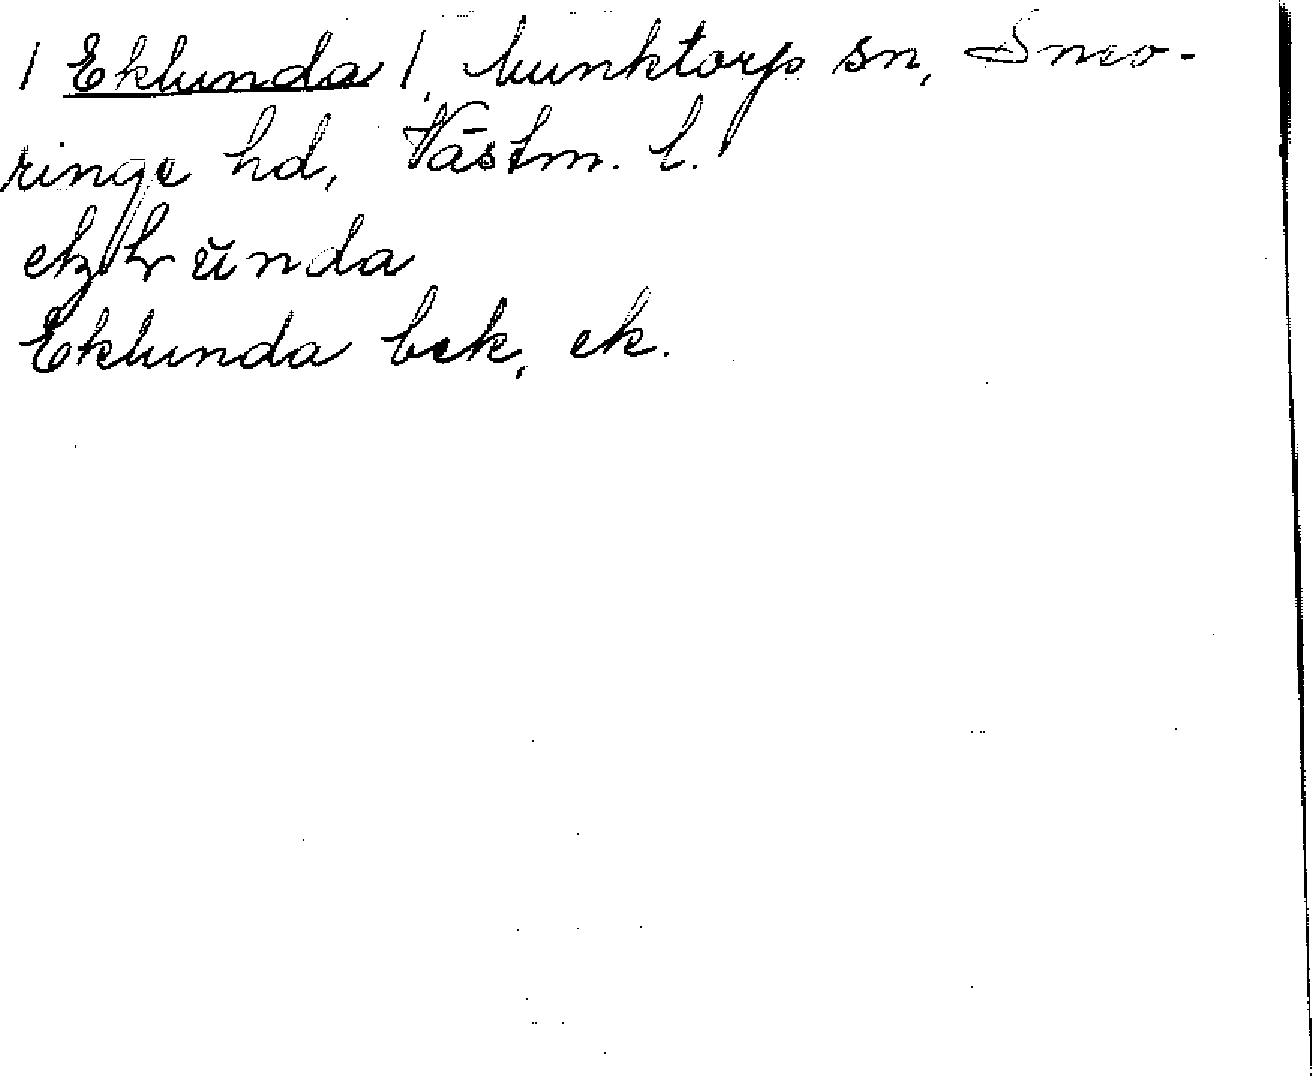 / Eklunda /, Munktorp sn, Snevringe hd, Västm. l.
Eklunda bek, ek.